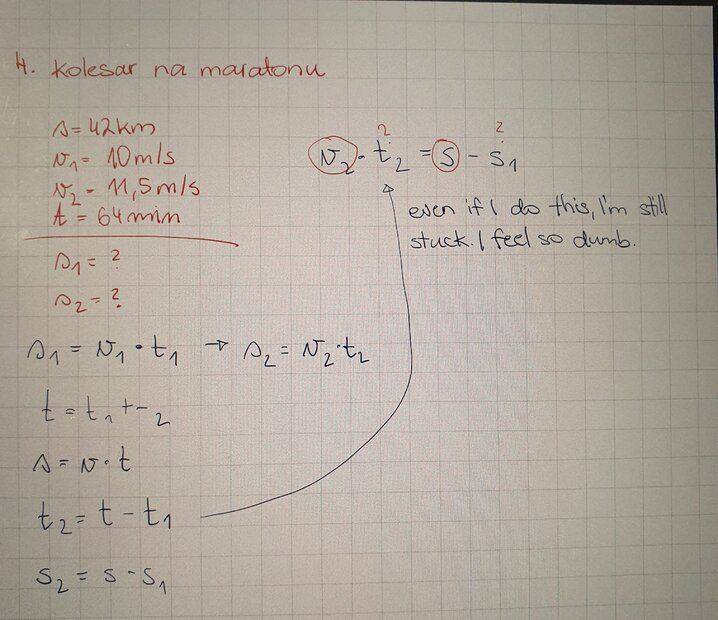 4. Kolesar na maratonu
s = 42km
v₁ = 10m/s
v₂ = 11,5m/s
t = 64min
s₁ = ?
s₂ = ?
s₁ = v₁ · t₁ → s₂ = v₂ · t₂
t = t₁ + -₂
s = v · t
t₂ = t - t₁
s₂ = s - s₁
? ?
v₂ · t₂ = s - s₁
even if I do this, I'm still
stuck. I feel so dumb.